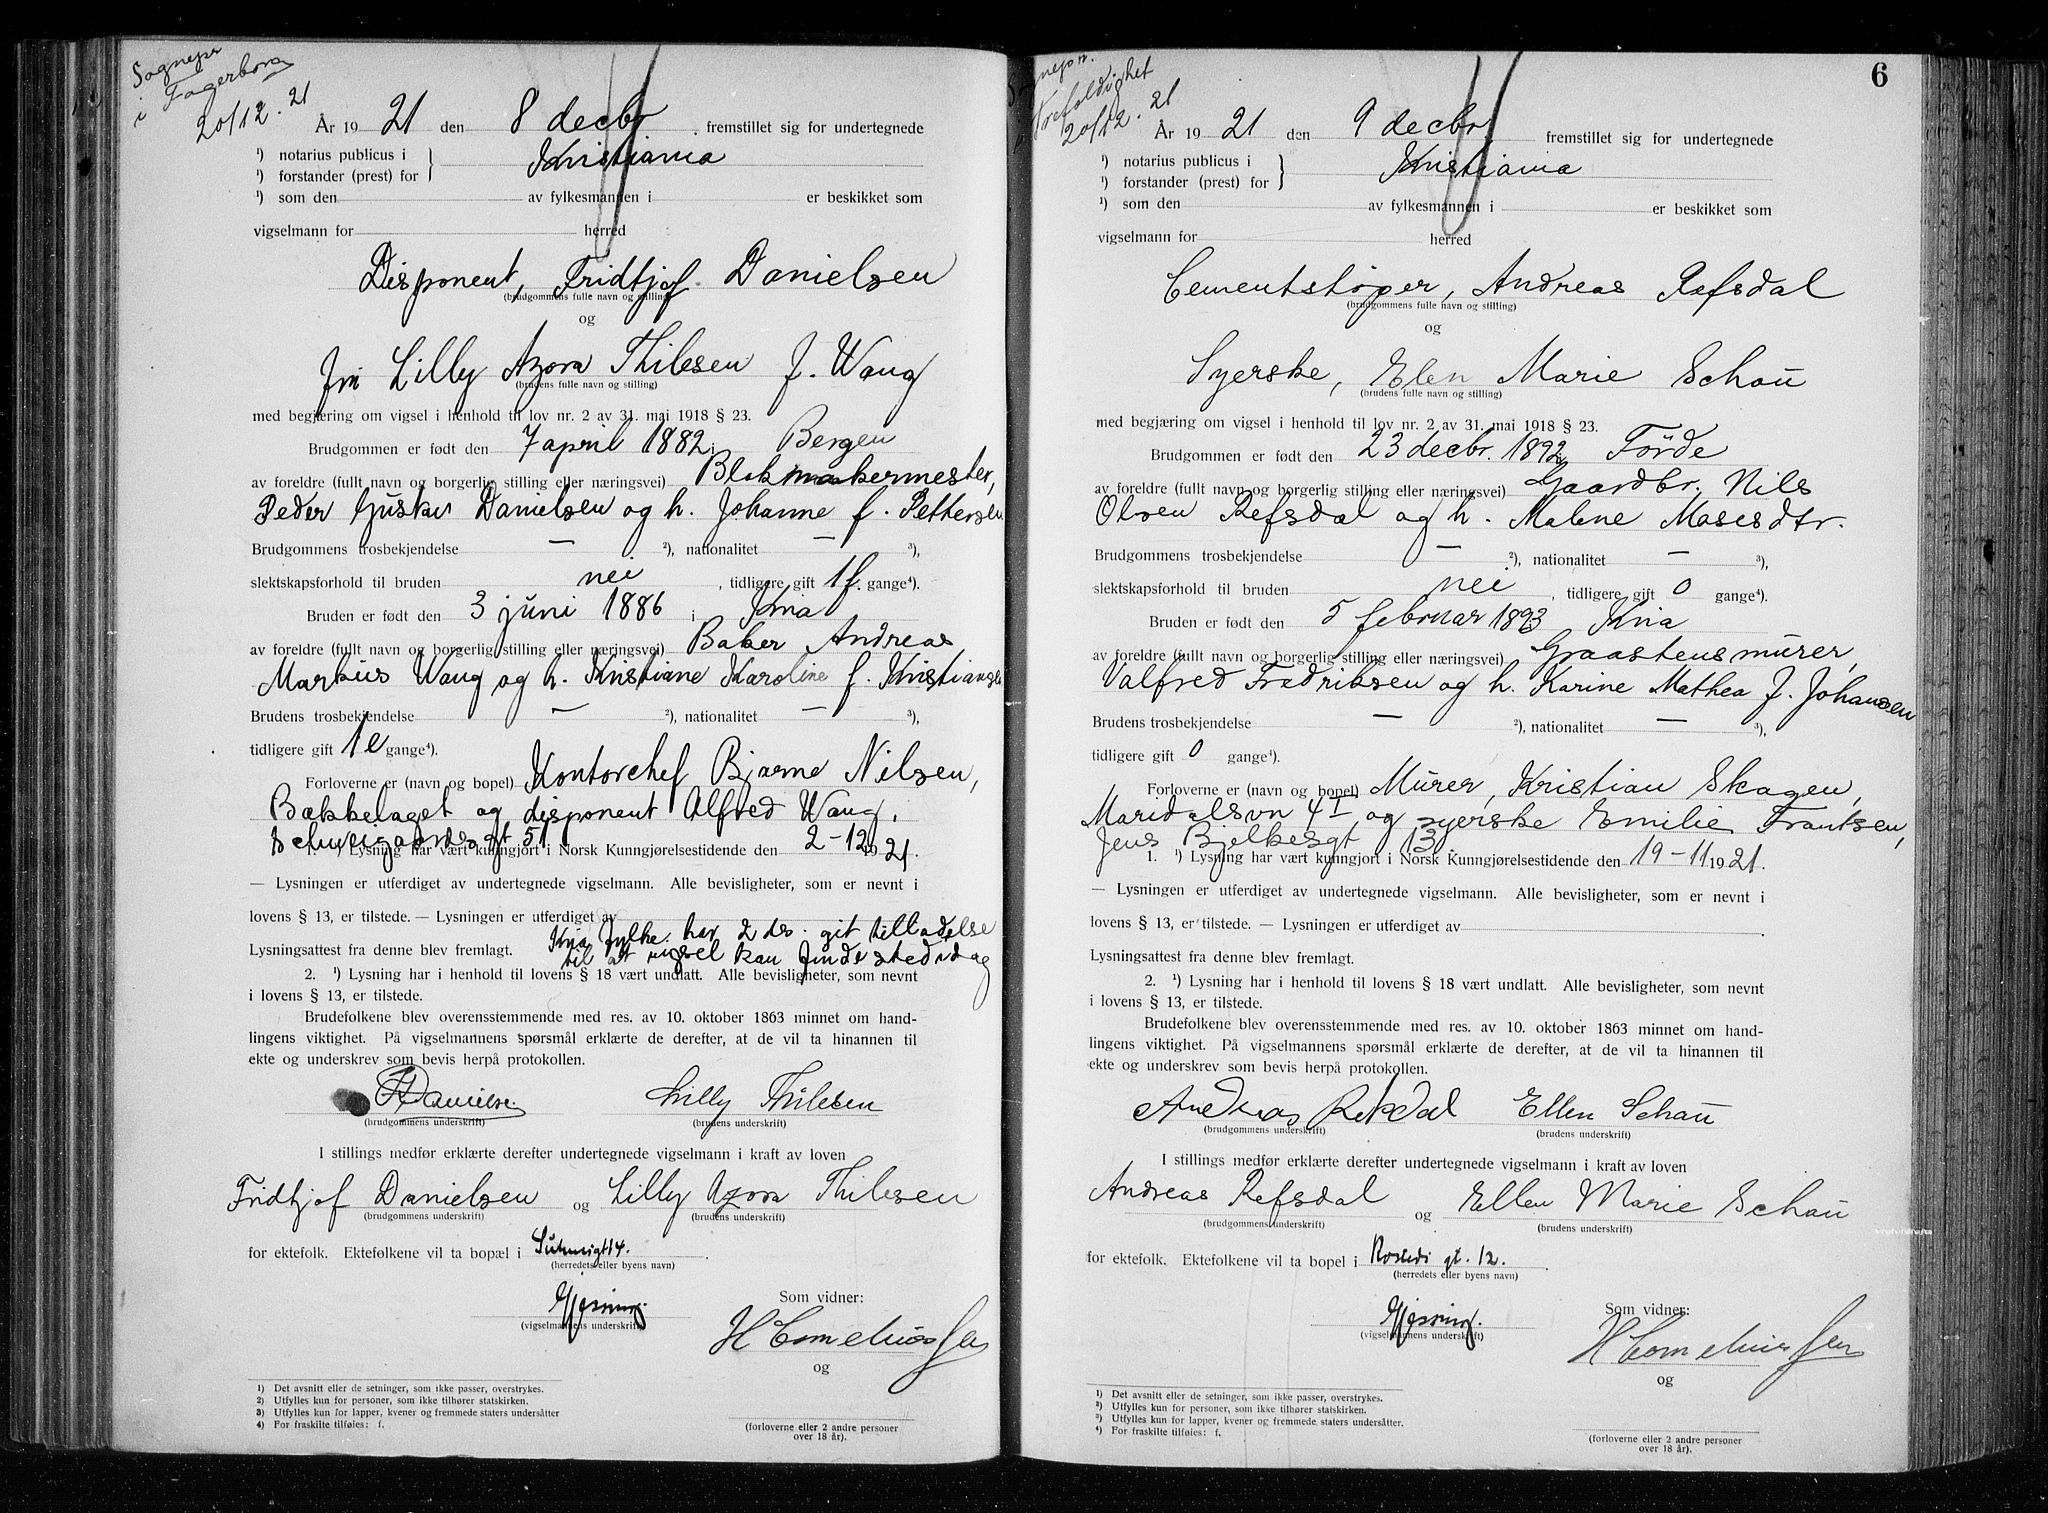 Sognepr
i Fagerborg
20/12. 21
År 1921 den 8 decbr. fremstillet sig for undertegnede
¹) notarius publicus i } Kristiania
¹) forstander (prest) for
¹) som den av fylkesmannen i er beskikket som
vigselmann for herred
Disponent, Fridtjof Danielsen
(brudgommens fulle navn og stilling)
og
Fru Lilly Azora Thilesen f. Wang
(brudens fulle navn og stilling)
med begjæring om vigsel i henhold til lov nr. 2 av 31. mai 1918 § 23.
Brudgommen er født den 7 april 1882 i Bergen
av foreldre (fullt navn og borgerlig stilling eller næringsvei) Blokmakermester,
Peder Danielsen og h. Johanne f. Pettersen
Brudgommens trosbekjendelse — ²), nationalitet — ³),
slektskapsforhold til bruden nei, tidligere gift 1 f. gange⁴).
Bruden er født den 3 juni 1886 i Kria
av foreldre (fullt navn og borgerlig stilling eller næringsvei) Baker Andreas
Markus Wang og h. Kristiane Karoline f. Kristiansen
Brudens trosbekjendelse — ²), nationalitet — ³),
tidligere gift 1 e gange⁴).
Forloverne er (navn og bopel) Kontorchef Bjarne Nilsen,
Bækkelaget og disponent Alfred Wang,
Schweigaardsgt 51
1. ¹) Lysning har vært kunngjort i Norsk Kunngjørelsestidende den 2-12 1921.
— Lysningen er utferdiget av undertegnede vigselmann. Alle bevisligheter, som er nevnt i
lovens § 13, er tilstede. — Lysningen er utferdiget av
Kria fylke har 2 ds. git tilladelse
Lysningsattest fra denne blev fremlagt. til at vigsel kan finde sted idag
2. ¹) Lysning har i henhold til lovens § 18 vært undlatt. Alle bevisligheter, som nevnt
i lovens § 13, er tilstede.
Brudefolkene blev overensstemmende med res. av 10. oktober 1863 minnet om hand-
lingens viktighet. På vigselmannens spørsmål erklærte de derefter, at de vil ta hinannen til
ekte og underskrev som bevis herpå protokollen.
F Danielsen. Lilly Thilesen
(brudgommens underskrift) (brudens underskrift)
I stillings medfør erklærte derefter undertegnede vigselmann i kraft av loven
Fridtjof Danielsen og Lilly Azora Thilesen
(brudgommens underskrift) (brudens underskrift)
for ektefolk. Ektefolkene vil ta bopæl i
(herredets eller byens navn)
Gjessing. Som vidner:
(vigselmannens underskrift)
H Corneliussen
og
1) Det avsnitt eller de setninger, som ikke passer, overstrykes.
2) Utfylles kun for personer, som ikke tilhører statskirken.
3) Utfylles kun for lapper, kvener og fremmede staters undersåtter
4) For fraskilte tilføies: f.
(forloverne eller 2 andre personer
over 18 år).
6
Sognepr.
Trefoldighet
20/12. 21
År 1921 den 9 decbr. fremstillet sig for undertegnede
¹) notarius publicus i } Kristiania
¹) forstander (prest) for
¹) som den av fylkesmannen i er beskikket som
vigselmann for herred
Cementstøper, Andreas Refsdal
(brudgommens fulle navn og stilling)
og
Syerske, Elen Marie Schau
(brudens fulle navn og stilling)
med begjæring om vigsel i henhold til lov nr. 2 av 31. mai 1918 § 23.
Brudgommen er født den 23 decbr. 1892 Förde
av foreldre (fullt navn og borgerlig stilling eller næringsvei) Gaardbr. Nils
Olsen Refsdal og h. Malene Mosesdtr.
Brudgommens trosbekjendelse — ²), nationalitet — ³),
slektskapsforhold til bruden nei, tidligere gift 0 gange⁴).
Bruden er født den 5 februar 1893 Kria
av foreldre (fullt navn og borgerlig stilling eller næringsvei) Graastensmurer,
Valfred Fredriksen og h. Karine Mathea f. Johansen
Brudens trosbekjendelse — ²), nationalitet — ³),
tidligere gift 0 gange⁴).
Forloverne er (navn og bopel) Murer, Kristian Skogen,
Maridalsvn 4 I og syerske Emilie Frantsen,
Jens Bjelkesgt 13
1. ¹) Lysning har vært kunngjort i Norsk Kunngjørelsestidende den 19-11 1921.
— Lysningen er utferdiget av undertegnede vigselmann. Alle bevisligheter, som er nevnt i
lovens § 13, er tilstede. — Lysningen er utferdiget av
Lysningsattest fra denne blev fremlagt.
2. ¹) Lysning har i henhold til lovens § 18 vært undlatt. Alle bevisligheter, som nevnt
i lovens § 13, er tilstede.
Brudefolkene blev overensstemmende med res. av 10. oktober 1863 minnet om hand-
lingens viktighet. På vigselmannens spørsmål erklærte de derefter, at de vil ta hinannen til
ekte og underskrev som bevis herpå protokollen.
Andreas Refsdal Ellen Schau
(brudgommens underskrift) (brudens underskrift)
I stillings medfør erklærte derefter undertegnede vigselmann i kraft av loven
Andreas Refsdal og Ellen Marie Schau
(brudgommens underskrift) (brudens underskrift)
for ektefolk. Ektefolkene vil ta bopel i gt. 12.
(herredets eller byens navn)
Gjessing. Som vidner:
(vigselmannens underskrift)
H Corneliussen
og
1) Det avsnitt eller de setninger, som ikke passer, overstrykes.
2) Utfylles kun for personer, som ikke tilhører statskirken.
3) Utfylles kun for lapper, kvener og fremmede staters undersåtter.
4) For fraskilte tilføies: f.
(forloverne eller 2 andre personer
over 18 år).